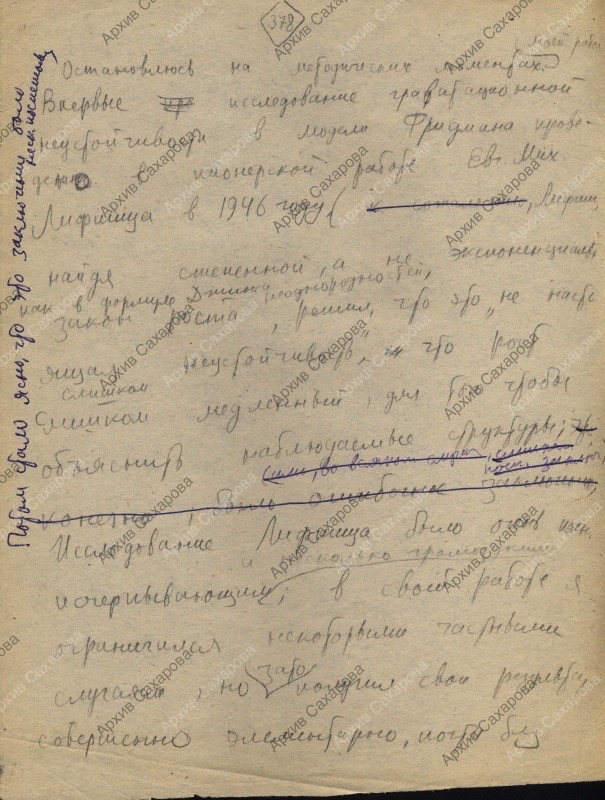 378
моей рабо
Остановлюсь на методических моментах.
Впервые исследование гравитационной
неустойчивости в модели Фридмана прове-
дено в пионерской работе Евг. Мих.
Лифшица в 1946 году (к сожалению, Лифшиц,
найдя степенной, а не экспоненциальн
как в формуле Джинса неоднородностей,
закон роста, решил, что это „не насто
ящая неустойчивость", что рост
слишком
слишком медленный, для того чтобы
объяснить наблюдаемые структуры;
или, во всяком случае, слишком
поспешн заключ
конечно, было ошибочное заключение,
Исследование Лифшица было очень
и несколько громоздким
исчерпывающим; в своей работе я
ограничился некоторыми частными
случаями, но зато получил свои результаты
совершенно элементарно, почти без
Потом стало ясно, что это заключение было
неск. поспешным)
Архив Сахарова